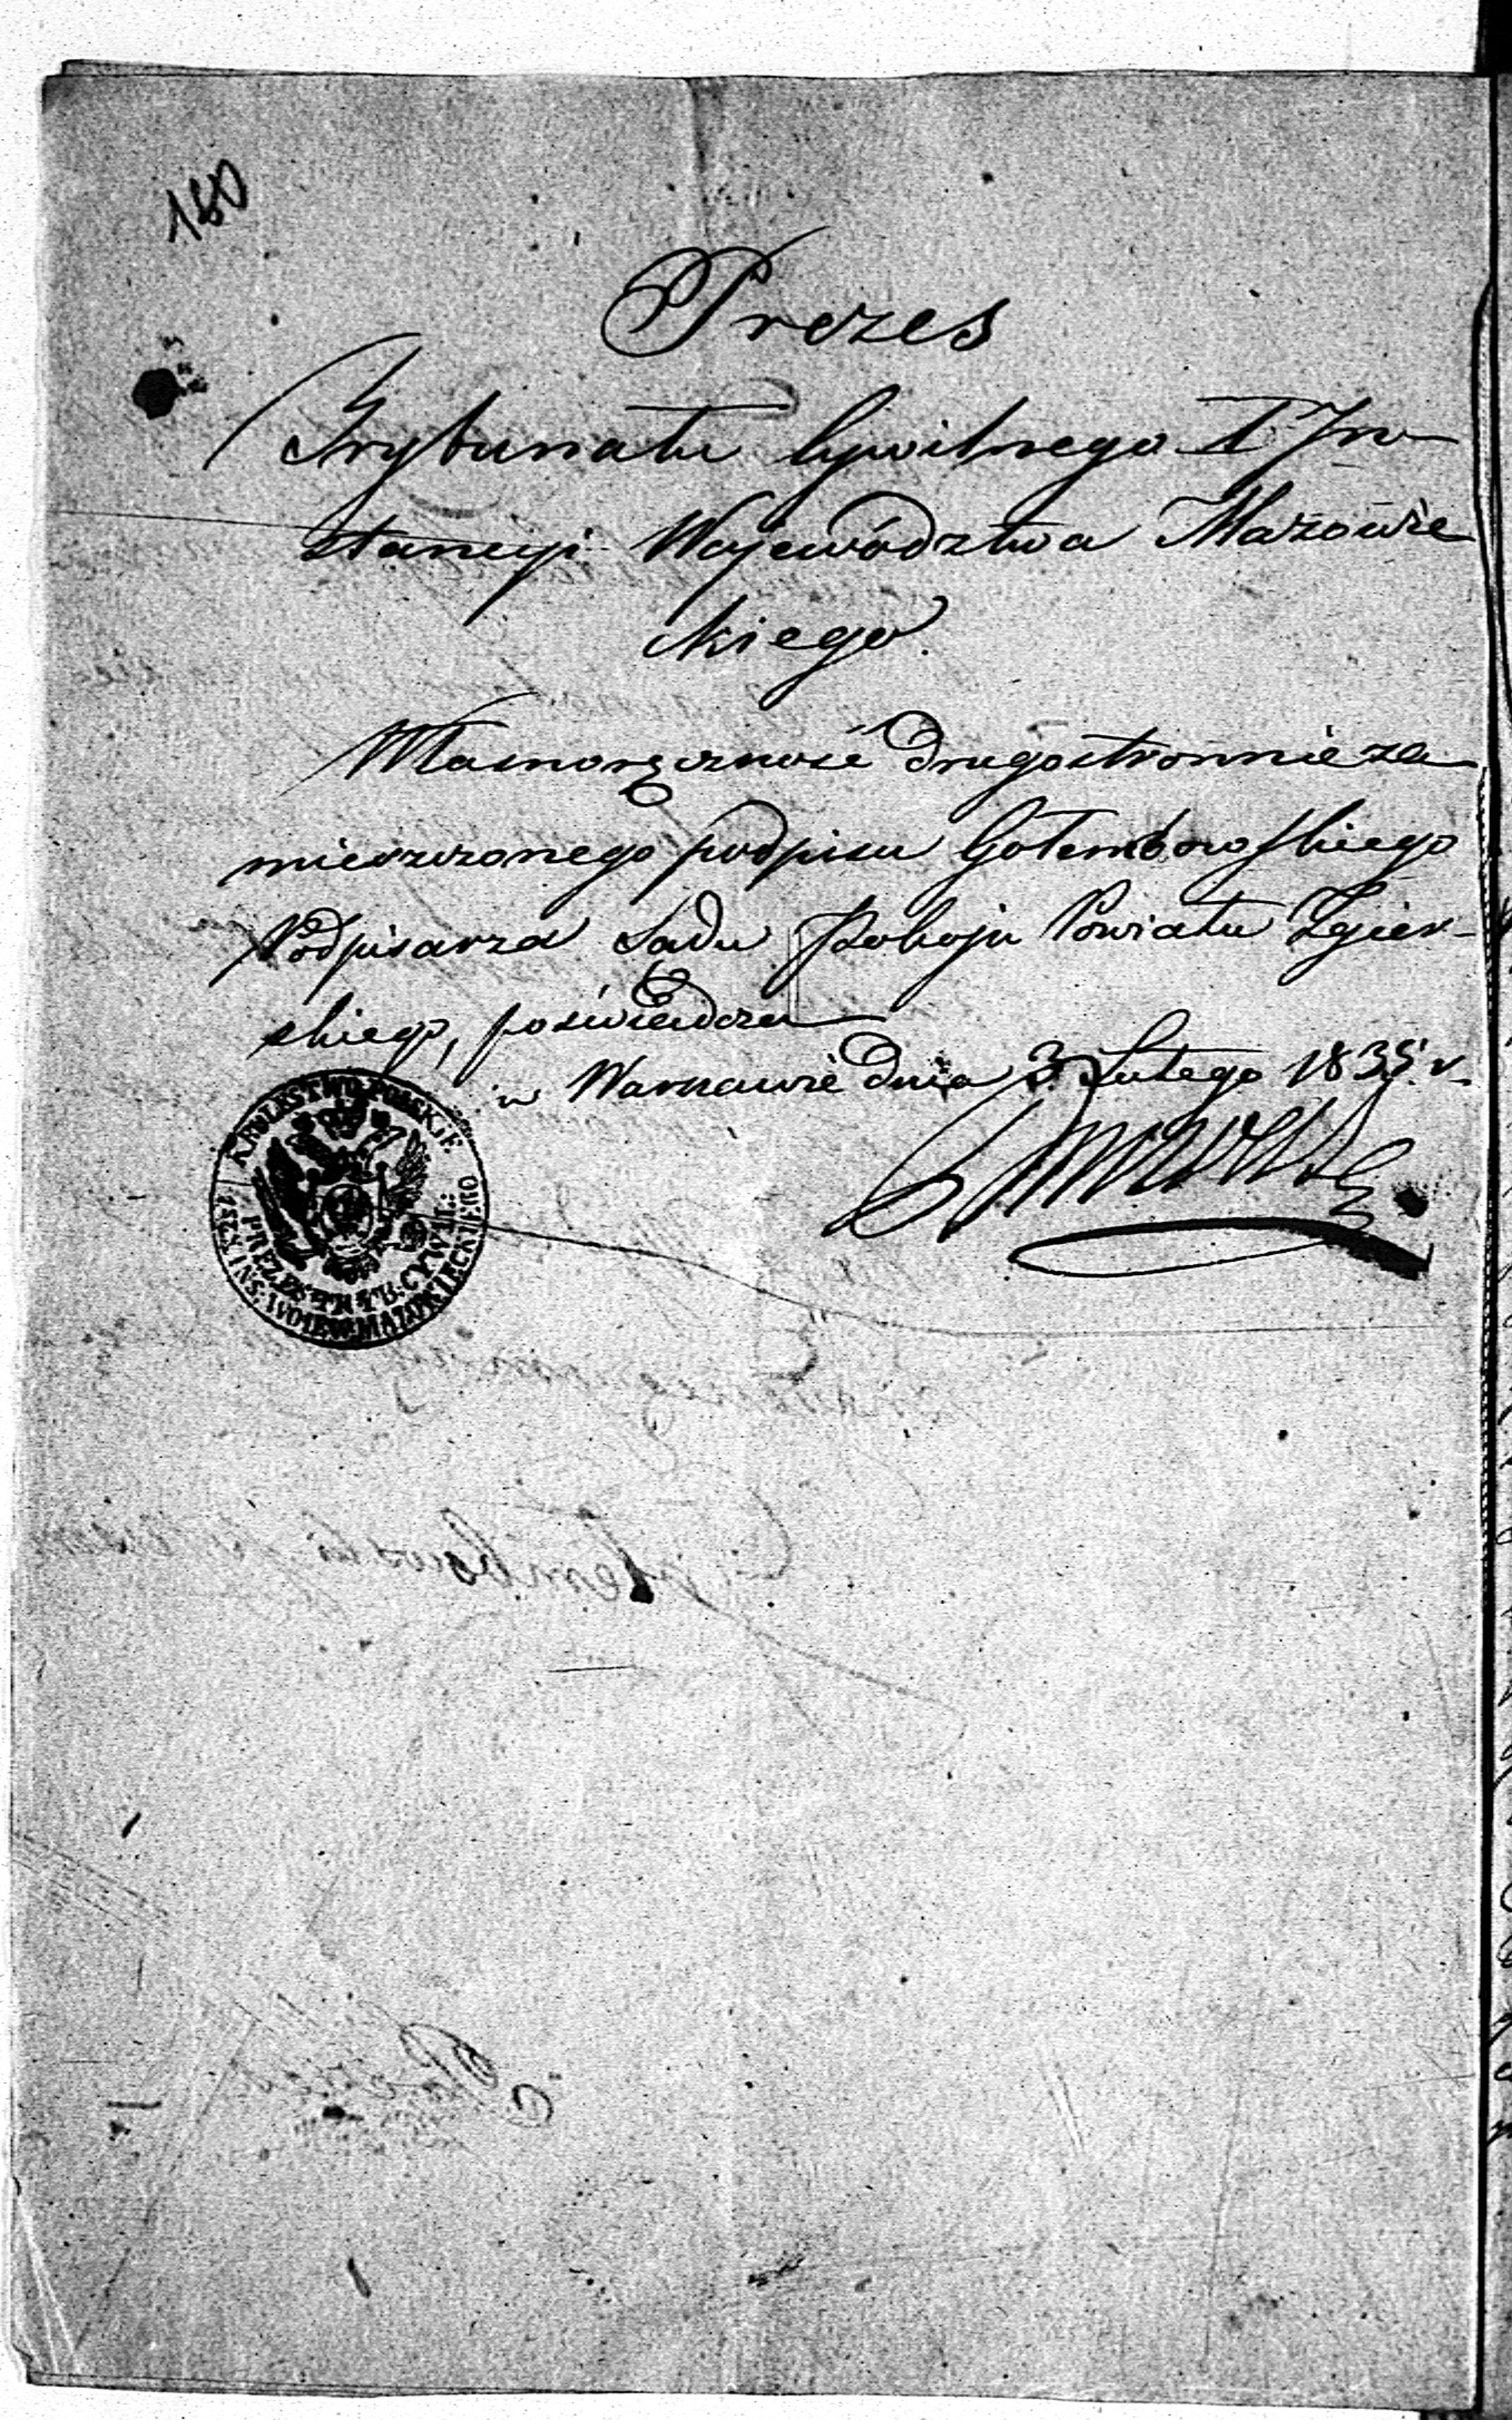 180
Prezes
Trybunału Cywilnego I Jn
stancyi Województwa Mazowie
ckiego.
Własnoręczność drugostronnie za
mieszczonego podpisu Gołembowskiego
Podpisarza Sadu Pokoju Powiatu Zgier-
skiego, poświadcza
w Warszawie dnia 3 Lutego 1835 r.
KRÓLESTWO POLSKIE
PREZES TRYB: CYWIL:
1SZEY INS: WOIEW: MAZOWIECKIEGO